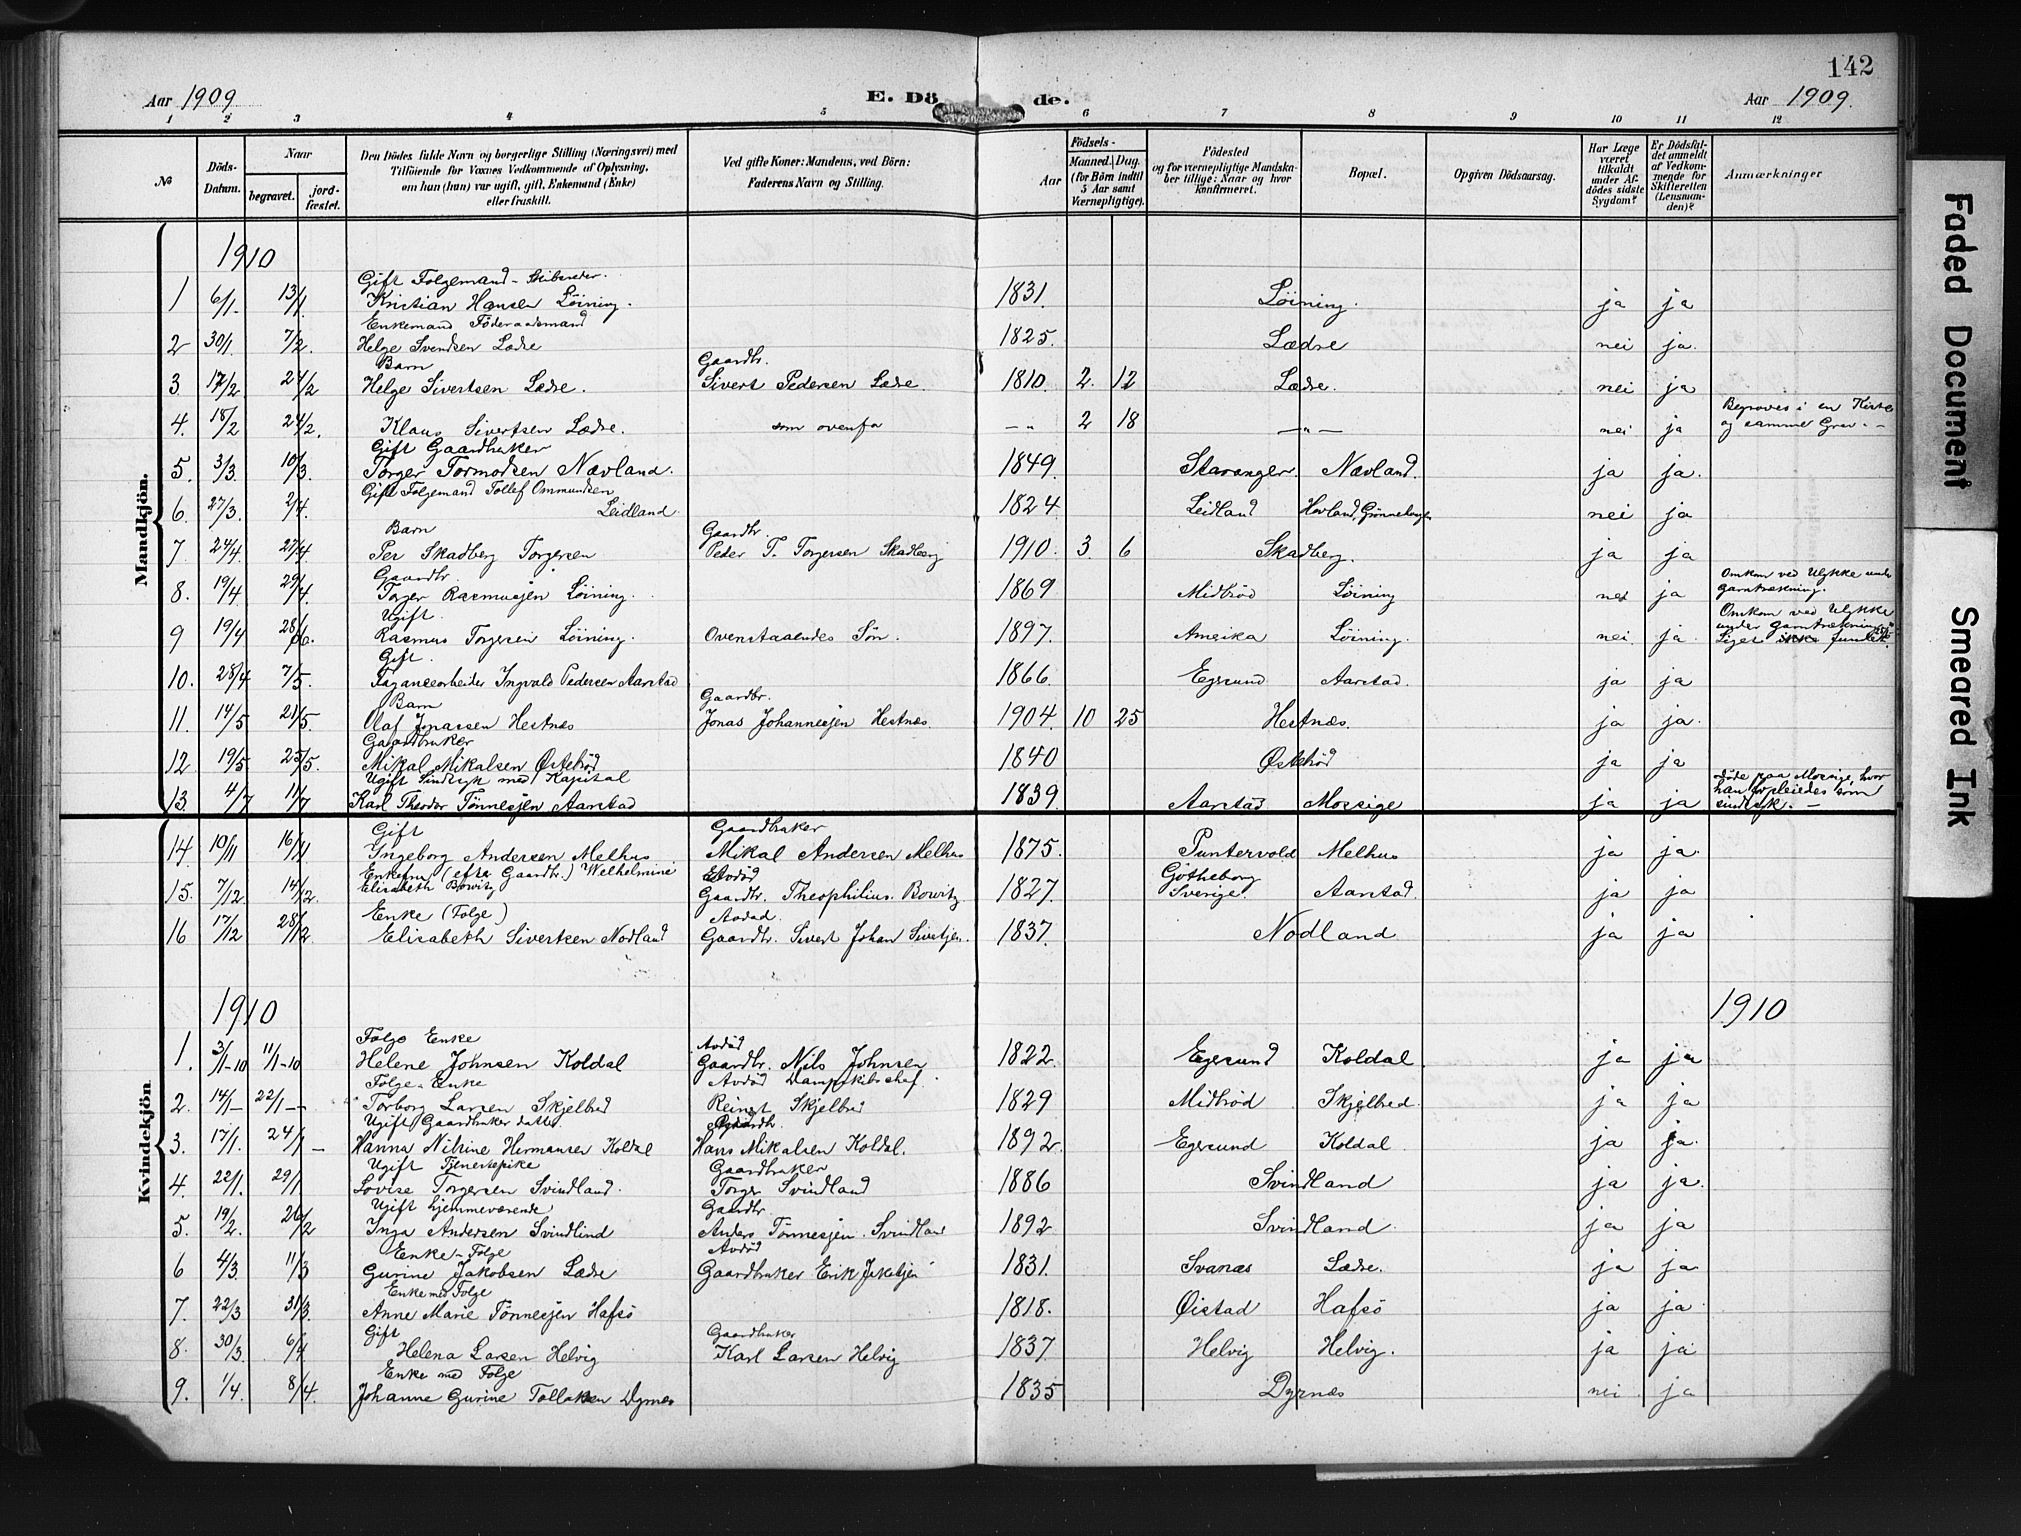 142
Aar 1909 E. Dö de. Aar 1909.
1 2 3 4 5 6 7 8 9 10 11 12
№
Döds-Datum.
Naar
begravet. jord-fæstet.
Den Dödes fulde Navn og borgerlige Stilling (Næringsvei) med
Tilföiende for Voxnes Vedkommende af Oplysning,
om han (hun) var ugift, gift, Enkemand (Enke)
eller fraskilt.
Ved gifte Koner: Mandens, ved Börn:
Faderens Navn og Stilling.
Födsels-
Aar
Maaned. Dag.
(for Börn indtil
5 Aar samt
Værnepligtige).
Födested
og for værnepligtige Mandska-
ber tillige: Naar og hvor
konfirmeret.
Bopæl.
Opgiven Dödsaarsag.
Har Læge
været
tilkaldt
under Af-
dödes sidste
Sygdom?
Er Dödsfal-
det anmeldt
af Vedkom-
mende for
Skifteretten
(Lensman-
den)?
Anmærkninger
Mandkjön.
1910
Gift Folgemand - Skibsreder.
1 6/1. 13/1 Kristian Hansen Löining. 1831. Löining. ja ja
Enkemand Föderaadsmand
2 30/1. 7/2. Helge Svendsen Lædre 1825. Lædre nei ja.
Barn Gaardbr.
3 17/2 24/2 Helge Sivertsen Lædre. Sivert Pedersen Lædre. 1810. 2. 12 Lædre. nei ja
Begraves i en Kiste
4. 18/2 24/2. Klaus Sivertsen Lædre. som ovenfor — " 2 18 — " — nei ja og samme Grav. —
Gift Gaardbruker
5. 3/3. 10/3. Torger Tormodsen Nævland. 1849. Stavanger. Nævland. ja ja.
Gift Folgemand Tollef Ommundsen
6. 27/3. 2/4. Leidland 1824 Leidland Hovland, nei ja
Barn Gaardbr.
7 24/4. 27/4 Per Skadberg Torgersen Peder T. Torgersen Skadberg 1910. 3. 6 Skadberg. ja ja
Gaardbr. Omkom ved Ulykke under
8. 19/4 29/4. Torger Rasmusjen Löining. 1869 Midbröd Löining nei ja garntrækning.
Ugift. Omkom ved Ulykke
9 19/4 28/6. Rasmus Torgersen Löining. Ovenstaaendes Sön. 1897. Ameika Löining. nei ja. under garntrækning
Liget ikke fundet.
Gift.
10. 28/4 7/5. Ingvald Pedersen Aarstad 1866. Egersund Aarstad. ja ja
Barn Gaardbr.
11. 14/5 21/5. Olaf Jonassen Hestnæs Jonas Johannesjen Hestnæs. 1904. 10 25 Hestnæs. ja ja.
Gaardbruker
12. 19/5. 25/5. Mikal Mikalsen Östebröd 1840 Östebröd ja ja
Ugift Sindsyk med Kapital döde paa Mossige, hvor
13. 4/7 11/7 Karl Theodor Tönnesjen Aarstad 1839. Aarstad Mossige ja ja han forpleiedes som
sindsyk. —
Kvindekjön
Gift Gaardbruker
14. 10/11 16/11 Ingeborg Andersen Melhus Mikal Andersen Melhus 1875. Puntervold Melhus ja ja.
Enkefru (efter Gaardbr.) Welhelmine Avdöd Götheborg
15. 7/12 14/12. Elisabeth Bowitz Gaardbr. Theophilius Bowitz 1827. Sverige. Aarstad. ja ja
Enke (Folge) Avdöd.
16 17/12 28/12 Elisabeth Sivertsen Nodland Gaardbr. Sivert Johan Sivertjen. 1837. Nodland ja ja
1910 1910
Folge Enke Avdöd
1. 3/1-10 11/1-10 Helene Johnsen Koldal Gaardbr. Nils Johnsen 1822. Egersund Koldal. ja ja
Folge-Enke Avdöd Dampskibschef.
2. 14/1- 22/1-- Torborg Larsen Skjelbred Reinert Skjelbred 1829 Midbröd Skjelbred. ja ja
Ugift Gaardbruker datter Gaardbr.
3. 17/1. 24/1 - Hanna Nilsine Hermansen Koldal Hans Mikalsen Koldal. 1892. Egersund Koldal. ja ja.
Ugift Tjenestepike Gaardbruker
4. 22/1. 29/1 Lovise Torgersen Svindland. Torger Svindland 1886 Svindland ja ja.
Ugift hjemmeværende Gaardbr.
5. 19/2. 26/2 Inga Andersen Svindlind Anders Tönnesjen. Svindland 1892 Svindland. ja ja
Enke - Folge Avdöd
6 4/3. 11/3 Gurine Jakobsen Lædre Gaardbruker Erik Jakobjen 1831. Svanæs Lædre. ja ja.
Enke med Folge
7. 22/3 31/3. Anne Marie Tönnesjen Hafsö 1818. Öistad Hafsö ja ja.
Gift Gaardbruker
8. 30/3. 6/4 Helena Larsen Helvig Karl Larsen Helvig 1837 Helvig Helvig. ja ja
Enke med Folge
9. 1/4. 8/4. Johanne Gurine Tollaksen Dyrnes 1835 Dyrnæs nei. ja
Faded Document
Smeared Ink